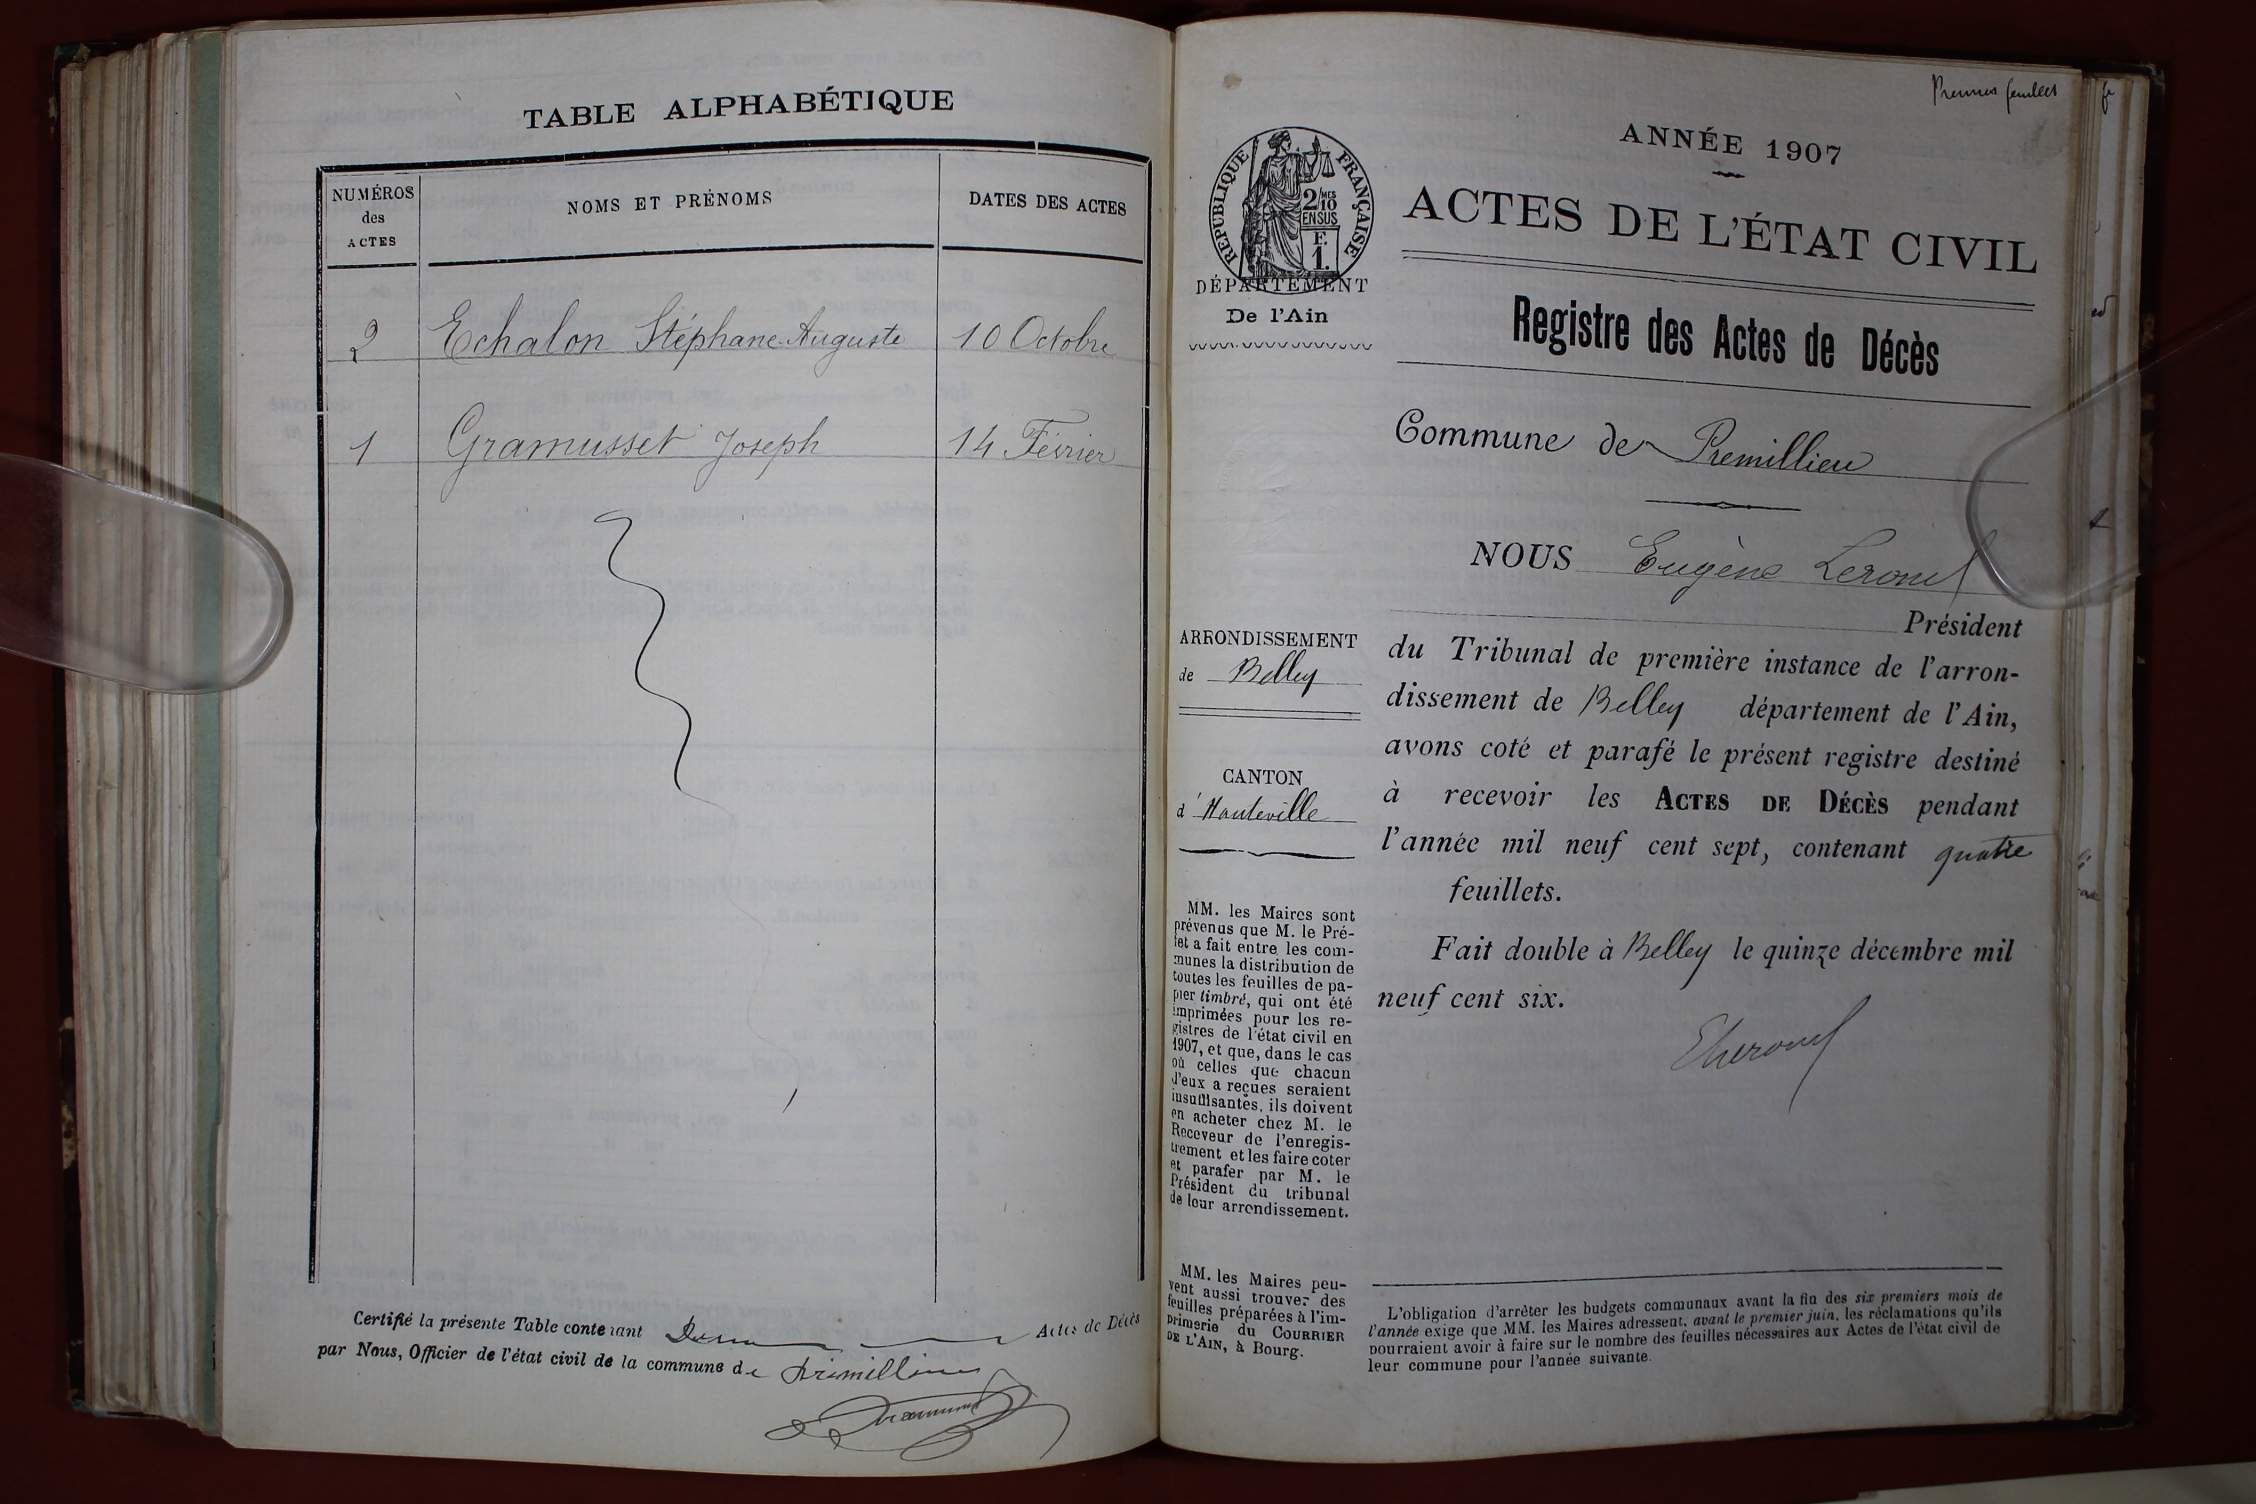 TABLE ALPHABÉTIQUE
NUMÉROS
des
ACTES
NOMS ET PRÉNOMS
DATES DES ACTES
2 Echalon Stéphane Auguste 10 Octobre
1 Gramusset Joseph 14 Février
Certifié la présente Table contenant Deux Actes de Décès
par Nous, Officier de l'état civil de la commune de Prémillieu
Premier feuillet
ANNÉE 1907
RÉPUBLIQUE FRANÇAISE
2/10 MES
EN SUS
F.
1.
DÉPARTEMENT
De l'Ain
ACTES DE L'ÉTAT CIVIL
Registre des Actes de Décès
Commune de Premillieu
NOUS Eugène
Président
du Tribunal de première instance de l'arron-
dissement de Belley département de l'Ain,
avons coté et parafé le présent registre destiné
à recevoir les ACTES DE DÉCÈS pendant
l'année mil neuf cent sept, contenant quatre
feuillets.
Fait double à Belley le quinze décembre mil
neuf cent six.
ARRONDISSEMENT
de Belley
CANTON
d'Hauteville
MM. les Maires sont
prévenus que M. le Pré-
fet a fait entre les com-
munes la distribution de
toutes les feuilles de pa-
pier timbré, qui ont été
imprimées pour les re-
gistres de l'état civil en
1907, et que, dans le cas
où celles que chacun
d'eux a reçues seraient
insuffisantes, ils doivent
en acheter chez M. le
Receveur de l'enregis-
trement et les faire coter
et parafer par M. le
Président du tribunal
de leur arrondissement.
MM. les Maires peu-
vent aussi trouver des
feuilles préparées à l'im-
primerie du COURRIER
DE L'AIN, à Bourg.
L'obligation d'arrêter les budgets communaux avant la fin des six premiers mois de
l'année exige que MM. les Maires adressent, avant le premier juin, les réclamations qu'ils
pourraient avoir à faire sur le nombre des feuilles nécessaires aux Actes de l'état civil de
leur commune pour l'année suivante.